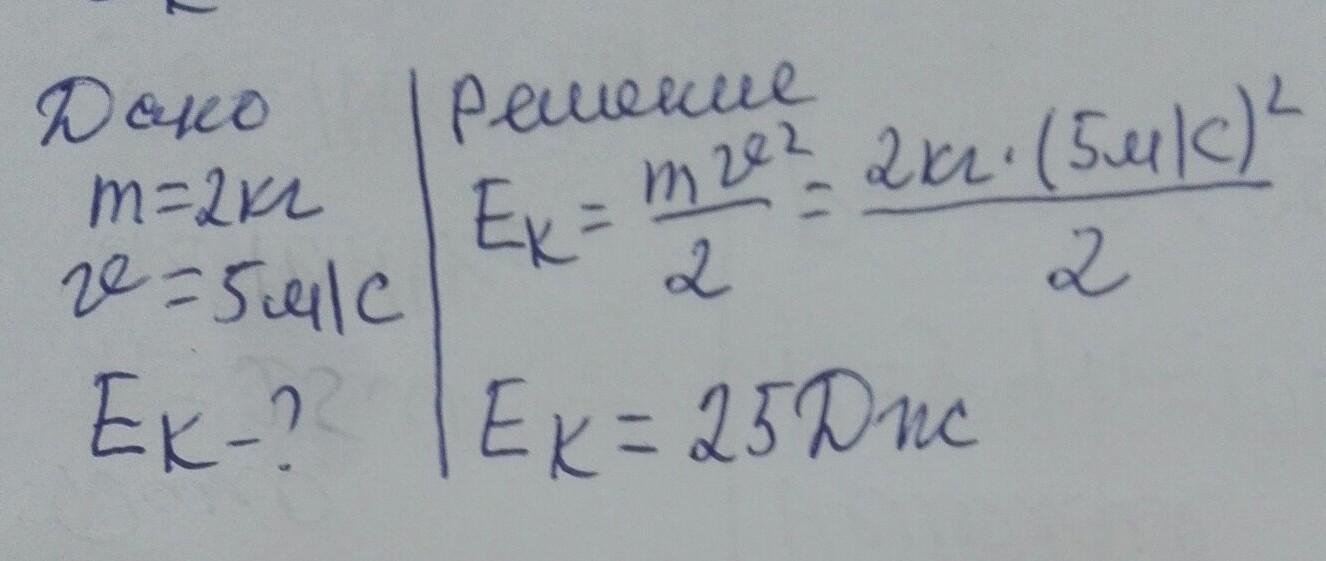 Дано
m=2кг
v=5м/с
Eк-?
Решение
Eк = mv²/2 = 2кг·(5м/с)²/2
Eк = 25Дж